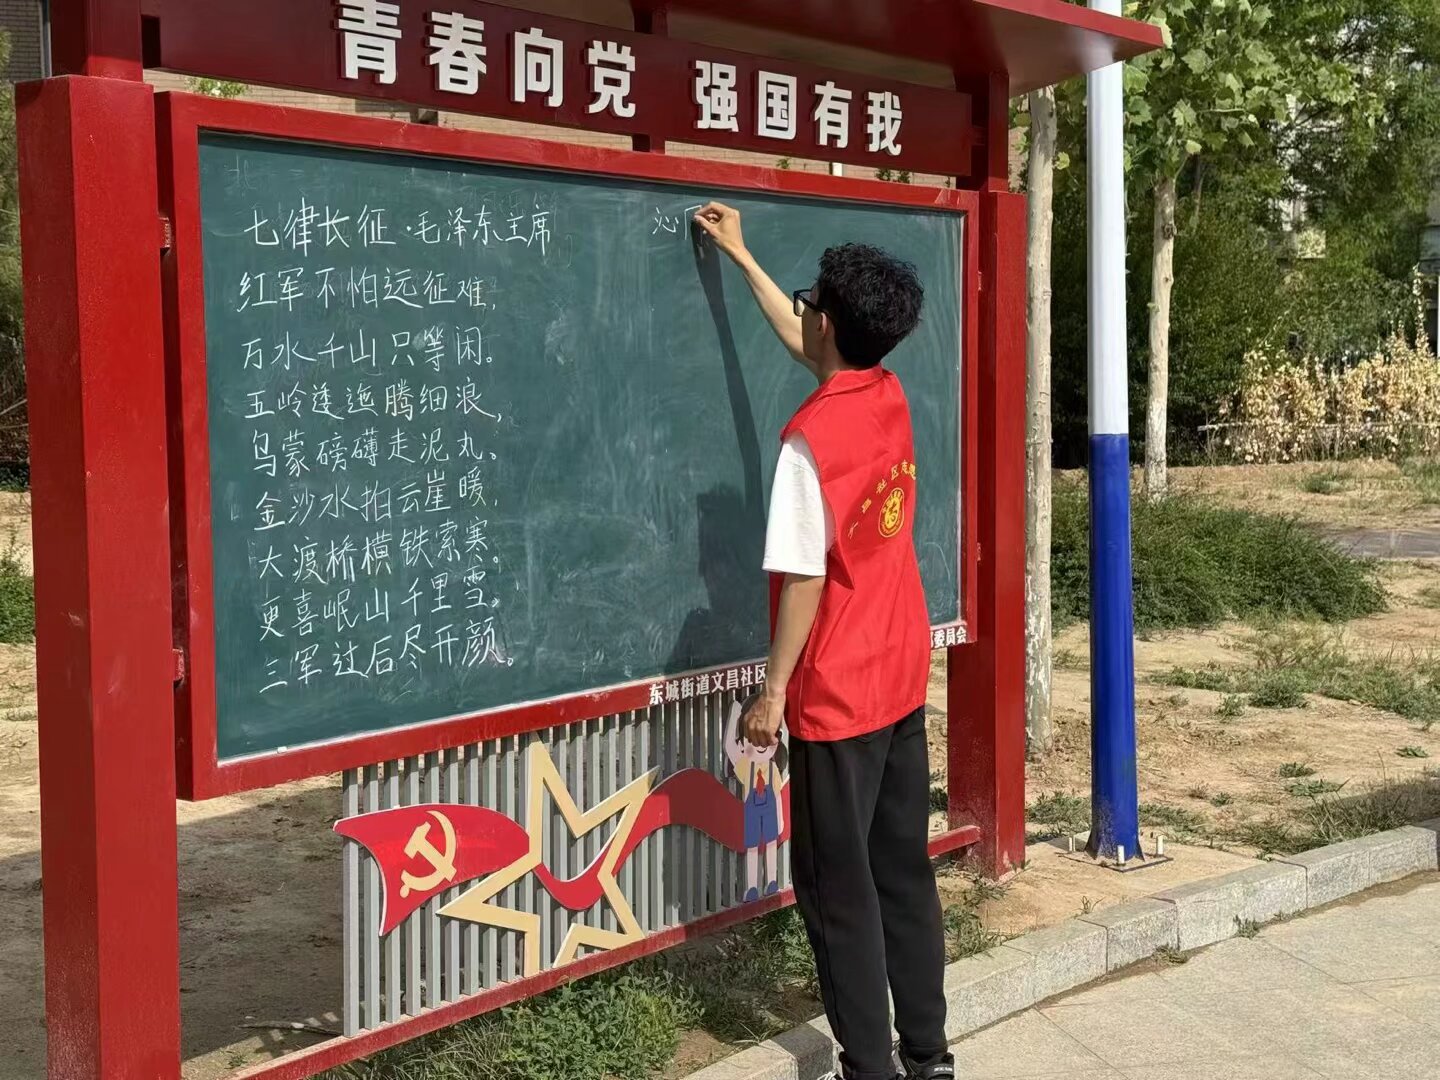 青春向党 强国有我
七律长征·毛泽东主席
红军不怕远征难，
万水千山只等闲。
五岭逶迤腾细浪，
乌蒙磅礴走泥丸。
金沙水拍云崖暖，
大渡桥横铁索寒。
更喜岷山千里雪，
三军过后尽开颜。
沁
东城街道文昌社区
委员会
昌社区